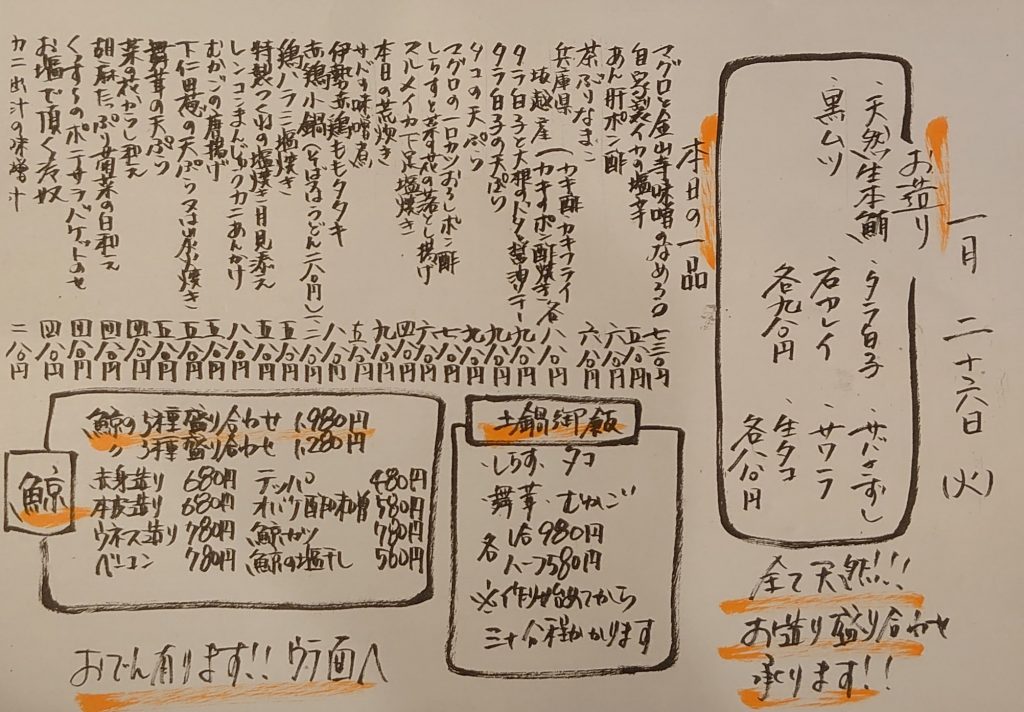 一月二十六日(火)
お造り
天然生本鮪 タラ白子 サバきずし
黒ムツ 石カレイ サワラ
各九八〇円 生タコ
各八八〇円
全て天然!!!
お造り盛り合わせ
承ります!!
本日の一品
マグロと金山寺味噌のなめろう 七三〇円
自家製イカの塩辛 五八〇円
あん肝ポン酢 六八〇円
茶ぶりなまこ 六八〇円
兵庫県
坂越産(カキ酢 カキフライ カキのポン酢焼き)各八八〇円
タラ白子の天ぷら 九八〇円
タコの天ぷら
マグロの一口カツおろしポン酢
しらすと菜の花の落とし揚げ
スルメイカ下足塩焼き 四八〇円
本日の荒炊き 九八〇円
サバの味噌煮 五八〇円
伊勢赤鶏ももタタキ 八八〇円
赤鶏小鍋(そば又はうどん二八〇円)
鶏ハラミ塩焼き 五八〇円
特製つくねの塩焼き 月見添え 五八〇円
レンコンまんじゅう カニあんかけ 八八〇円
むかごの唐揚げ 五八〇円
下仁田葱の天ぷら又は炭焼き 五八〇円
舞茸の天ぷら 五八〇円
菜の花からし和え 四八〇円
胡麻たっぷり菊菜の白和え 四八〇円
くずきりのポテサラ バケットのせ 四八〇円
お塩で頂く冷奴 四八〇円
カニ出汁の味噌汁 二八〇円
土鍋御飯
・しらす・タコ
・舞茸・むかご
各 1合980円
ハーフ580円
※作り始めてから
三十分程かかります
鯨
鯨の5種盛り合わせ 1,980円
〃 3種盛り合わせ 1,280円
赤身造り 680円 テッパ 480円
本皮造り 680円 オバケ酢味噌 580円
ウネス造り 780円 鯨カツ 780円
ベーコン 780円 鯨の塩干し 560円
おでん有ります!! ウラ面へ